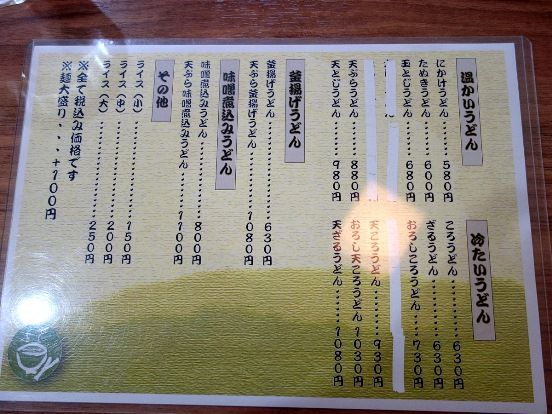 温かいうどん
にかけうどん・・・・・580円
たぬきうどん・・・・・600円
玉とじうどん・・・・・680円
天ぷらうどん・・・・・880円
天とじうどん・・・・・980円
冷たいうどん
ころうどん・・・・・・630円
ざるうどん・・・・・・630円
おろしころうどん・・・730円
天ころうどん・・・・・930円
おろし天ころうどん・1030円
天ざるうどん・・・・1080円
釜揚げうどん
釜揚げうどん・・・・・・・・・・630円
天ぷら釜揚げうどん・・・・・・1080円
味噌煮込みうどん
味噌煮込みうどん・・・・・・・・800円
天ぷら味噌煮込みうどん・・・・1100円
その他
ライス(小)・・・・・・・・・・150円
ライス(中)・・・・・・・・・・200円
ライス(大)・・・・・・・・・・250円
※全て税込み価格です
※麺大盛り・・・+100円